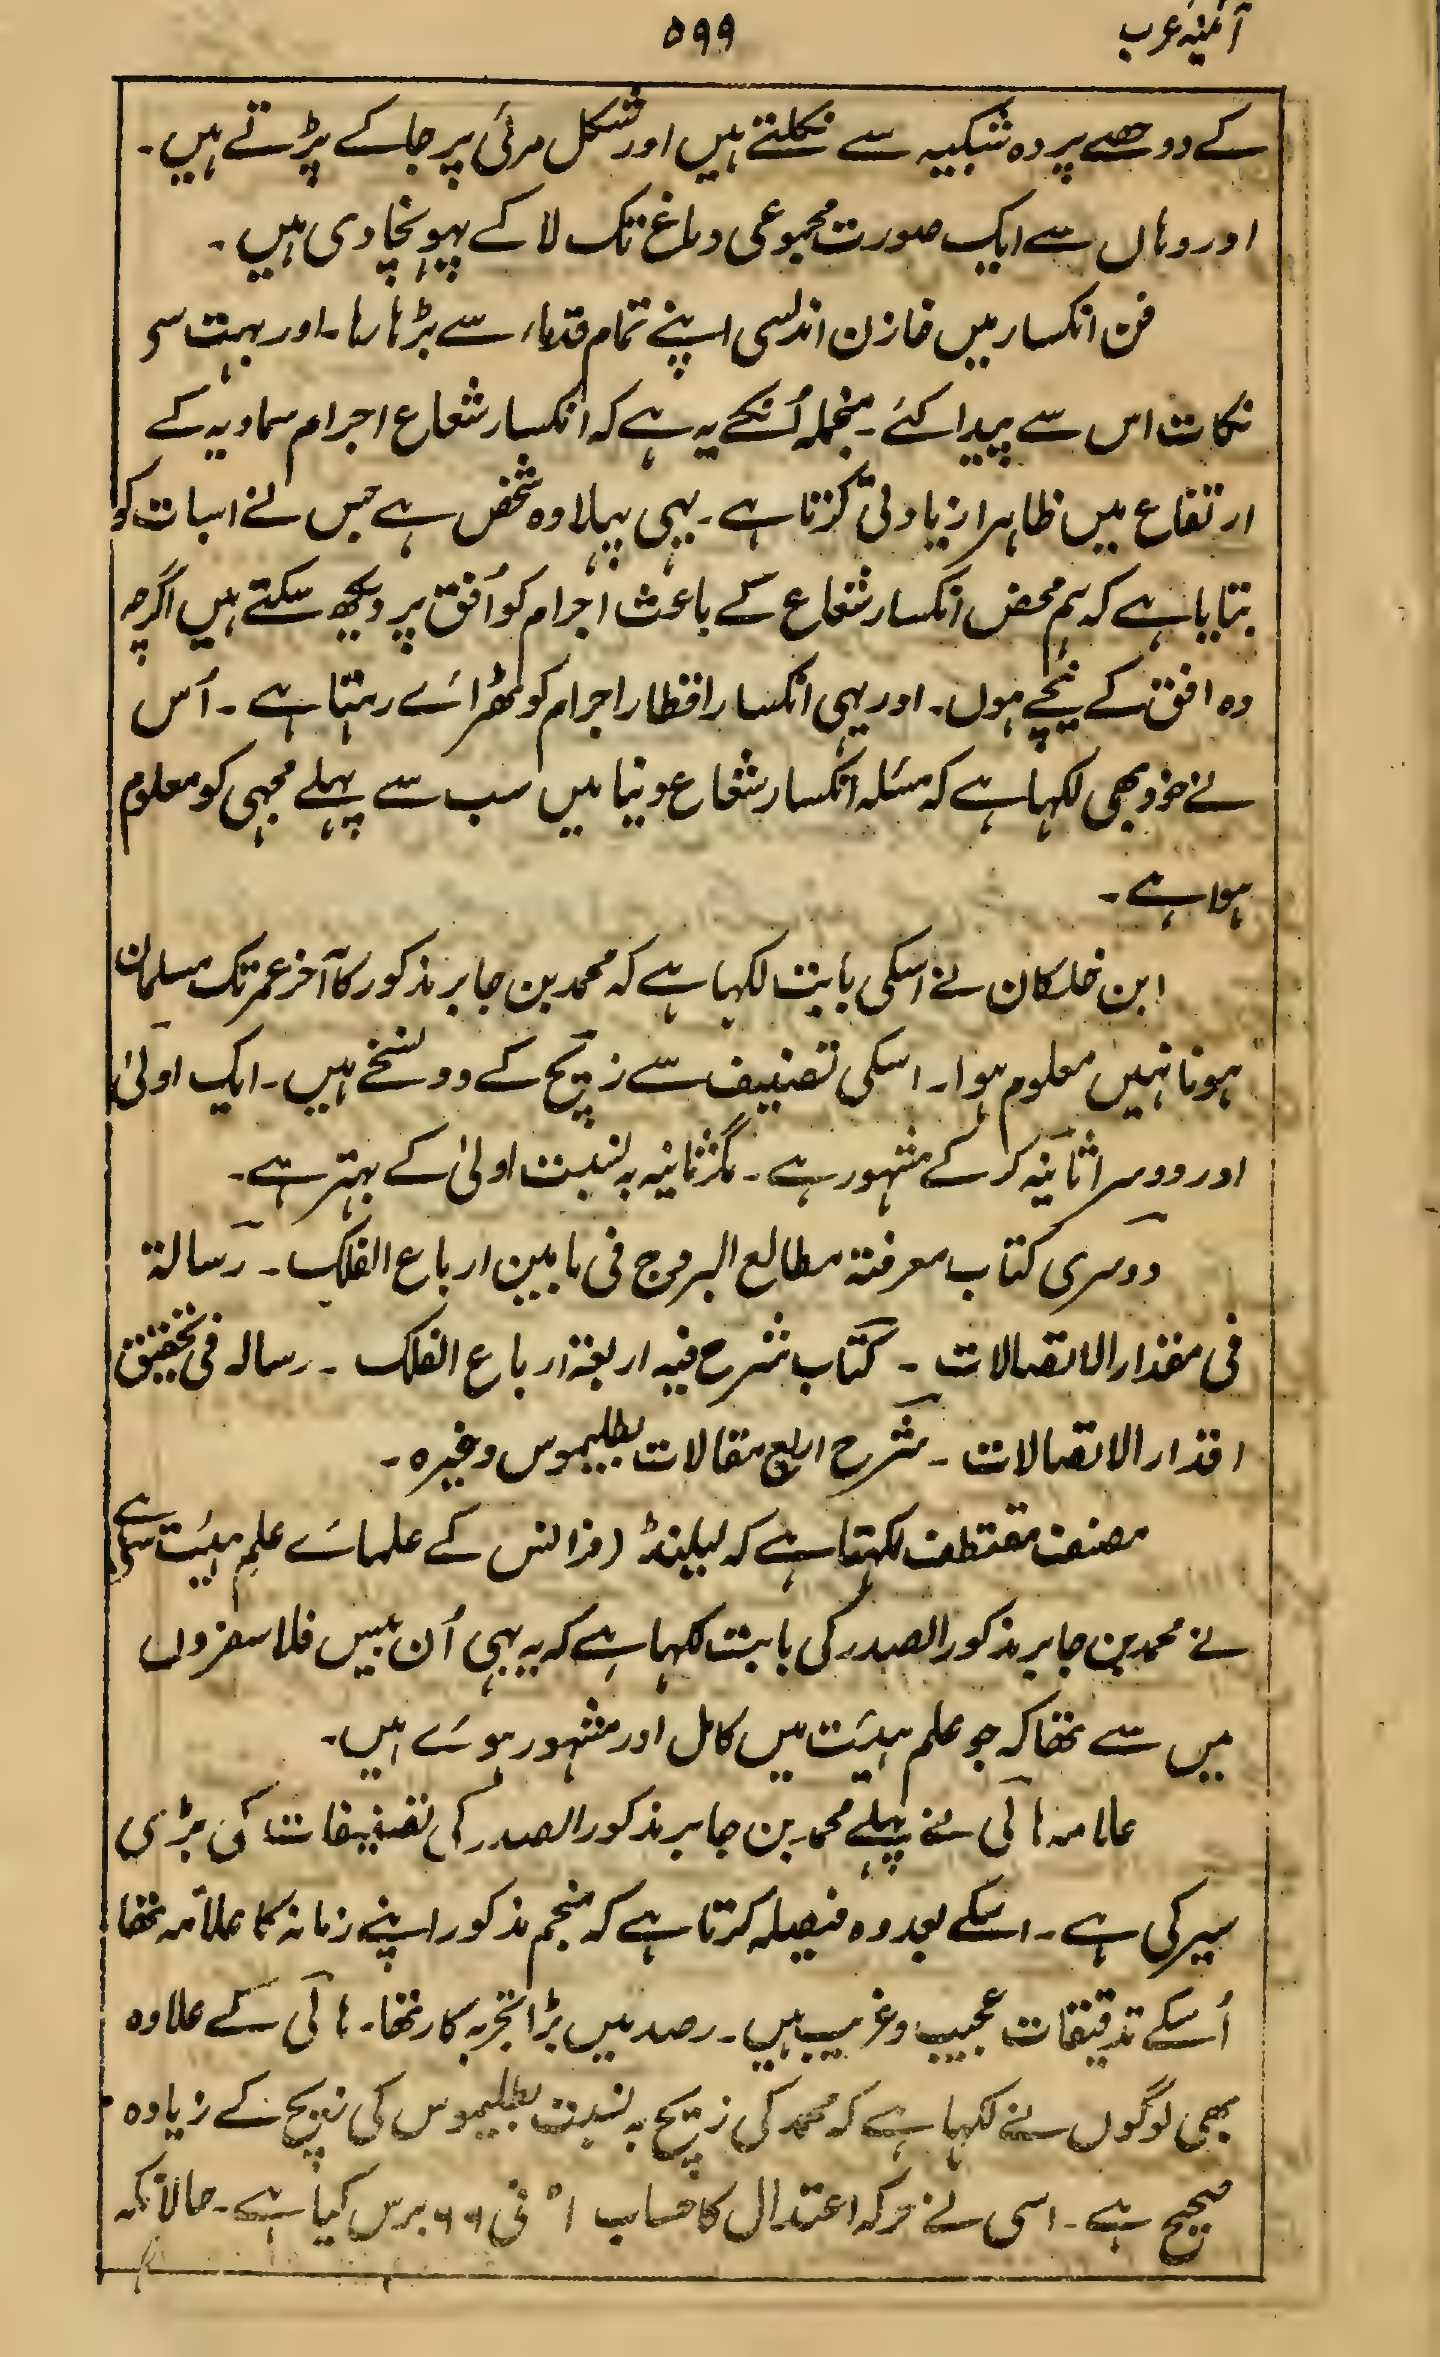 آئینہ عرب
۵۹۹
کے دو حصے پردہ شبکیہ سے نکلتے ہیں اور شکل مرئی پر جا کے پڑتے ہیں۔
اور وہاں سے ایک صورت مجموعی دماغ تک لا کے پہونچا دی ہیں۔
فن انکسار میں خازن اندلسی اپنے تمام قدماء سے بڑہا رہا۔ اور بہت سی
نکات اس سے پیدا کئے۔ منجملہ اُنکے یہ ہے کہ انکسار شعاع اجرام سماویہ کے
ارتفاع میں ظاہرا زیادتی کرتا ہے۔ یہی پہلا وہ شخص ہے جس نے اسبات کو
بتایا ہے کہ ہم محض انکسار شعاع کے باعث اجرام کو اُفق پر دیکھ سکتے ہیں اگرچہ
وہ افق کے نیچے ہوں۔ اور یہی انکسار اقطار اجرام کو ٹھرائے رہتا ہے۔ اُس
نے خود بھی لکہا ہے کہ مسئلہ انکسار شعاع دنیا میں سب سے پہلے مجہی کو معلوم
ہوا ہے۔
ابن خلکان نے اسکی بابت لکہا ہے کہ محمد بن جابر مذکور کا آخر عمر تک مسلمان
ہونا نہیں معلوم ہوا۔ اسکی تصنیف سے زیچ کے دو نسخے ہیں۔ ایک اولیٰ
اور دوسرا ثانیہ کر کے مشہور ہے۔ مگر ثانیہ بہ نسبت اولیٰ کے بہتر ہے۔
دوسری کتاب معرفتہ مطالع البروج فی مابین ارباع الفلک۔ رسالۃ
فی مقدار الاتصالات۔ کتاب شرح فیہ اربعۃ ارباع الفلک۔ رسالہ فی تحقیق
اقدار الاتصالات۔ شرح اربع مقالات بطلیموس وغیرہ۔
مصنف مقتطف لکہتا ہے کہ لیلینڈ (فرانس کے علمائے علم ہیئت سے
نے محمد بن جابر مذکور الصدر کی بابت لکہا ہے کہ یہ بہی اُن بیس فلاسفروں
میں سے تھا کہ جو علم ہیئت میں کامل اور مشہور ہوئے ہیں۔
علامہ ہالی نے پہلے محمد بن جابر مذکور الصدر کی تصنیفات کی بڑی
سیر کی ہے۔ اسکے بعد وہ فیصلہ کرتا ہے کہ منجم مذکور اپنے زمانہ کا علامہ تھا
اُسکے تدقیقات عجیب و غریب ہیں۔ رصد میں بڑا تجربہ کار تھا۔ ہالی کے علاوہ
بھی لوگوں نے لکہا ہے کہ محمد کی زیچ بہ نسبت بطلیموس کی زیچ کے زیادہ
صحیح ہے۔ اسی نے حرکہ اعتدال کا حساب ۱° فی ۶۶ برس کیا ہے۔ حالانکہ